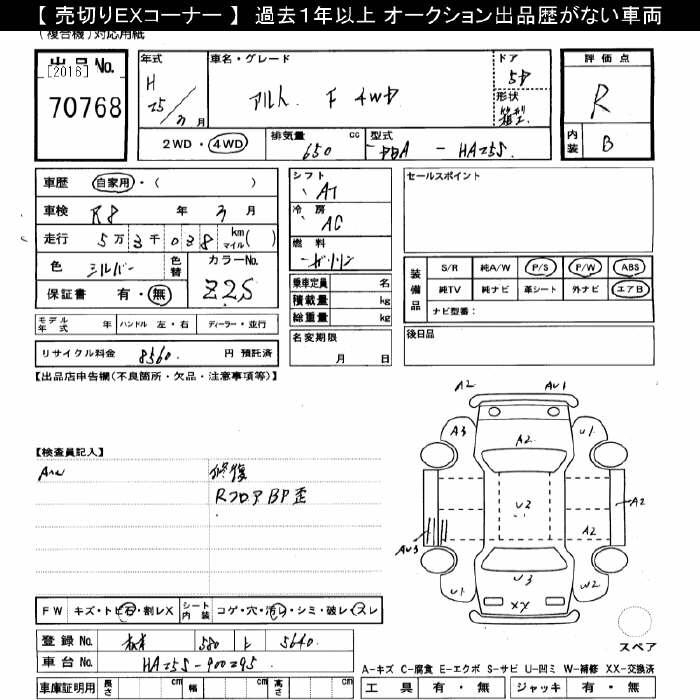 【 売切りEXコーナー 】 過去1年以上 オークション出品歴がない車両
(複合機)対応用紙
出品No.
[2016]
70768
年式
H
25/3月
車名・グレード
アルト F 4WD
ドア
5D
形状
箱型
評価点
R
内装
B
2WD・4WD
排気量
650 cc
型式
DBA - HA25S
車歴 自家用・( )
車検 R8 年 3 月
走行 5万3千038 km マイル( )
色 シルバー 色替
カラーNo.
Z2S
保証書 有・無
シフト
AT
冷房
AC
燃料
ガソリン
乗車定員 名
積載量 kg
総重量 kg
名変期限
月 日
セールスポイント
装備品
S/R 純A/W P/S P/W ABS
純TV 純ナビ 革シート 外ナビ エアB
ナビ型番：
後日品
モデル年式 年 ハンドル 左・右 ディーラー・並行
リサイクル料金 8560 円 預託済
【出品店申告欄(不良箇所・欠品・注意事項等)】
【検査員記入】
修復
RフロアBP歪
A2 AU1
A3 A2 U1
U2 A2
AU3 A2
U1 U3 W2
XX
スペア
FW キズ・トビ石・割レX シート内装 コゲ・穴・汚レ・シミ・破レ・スレ
登録No. 580 5640
車台No. HA25S-900295
車庫証明用 長さ cm 幅 cm 高さ cm
A-キズ C-腐食 E-エクボ S-サビ U-凹ミ W-補修 XX-交換済
工具 有・無 ジャッキ 有・無